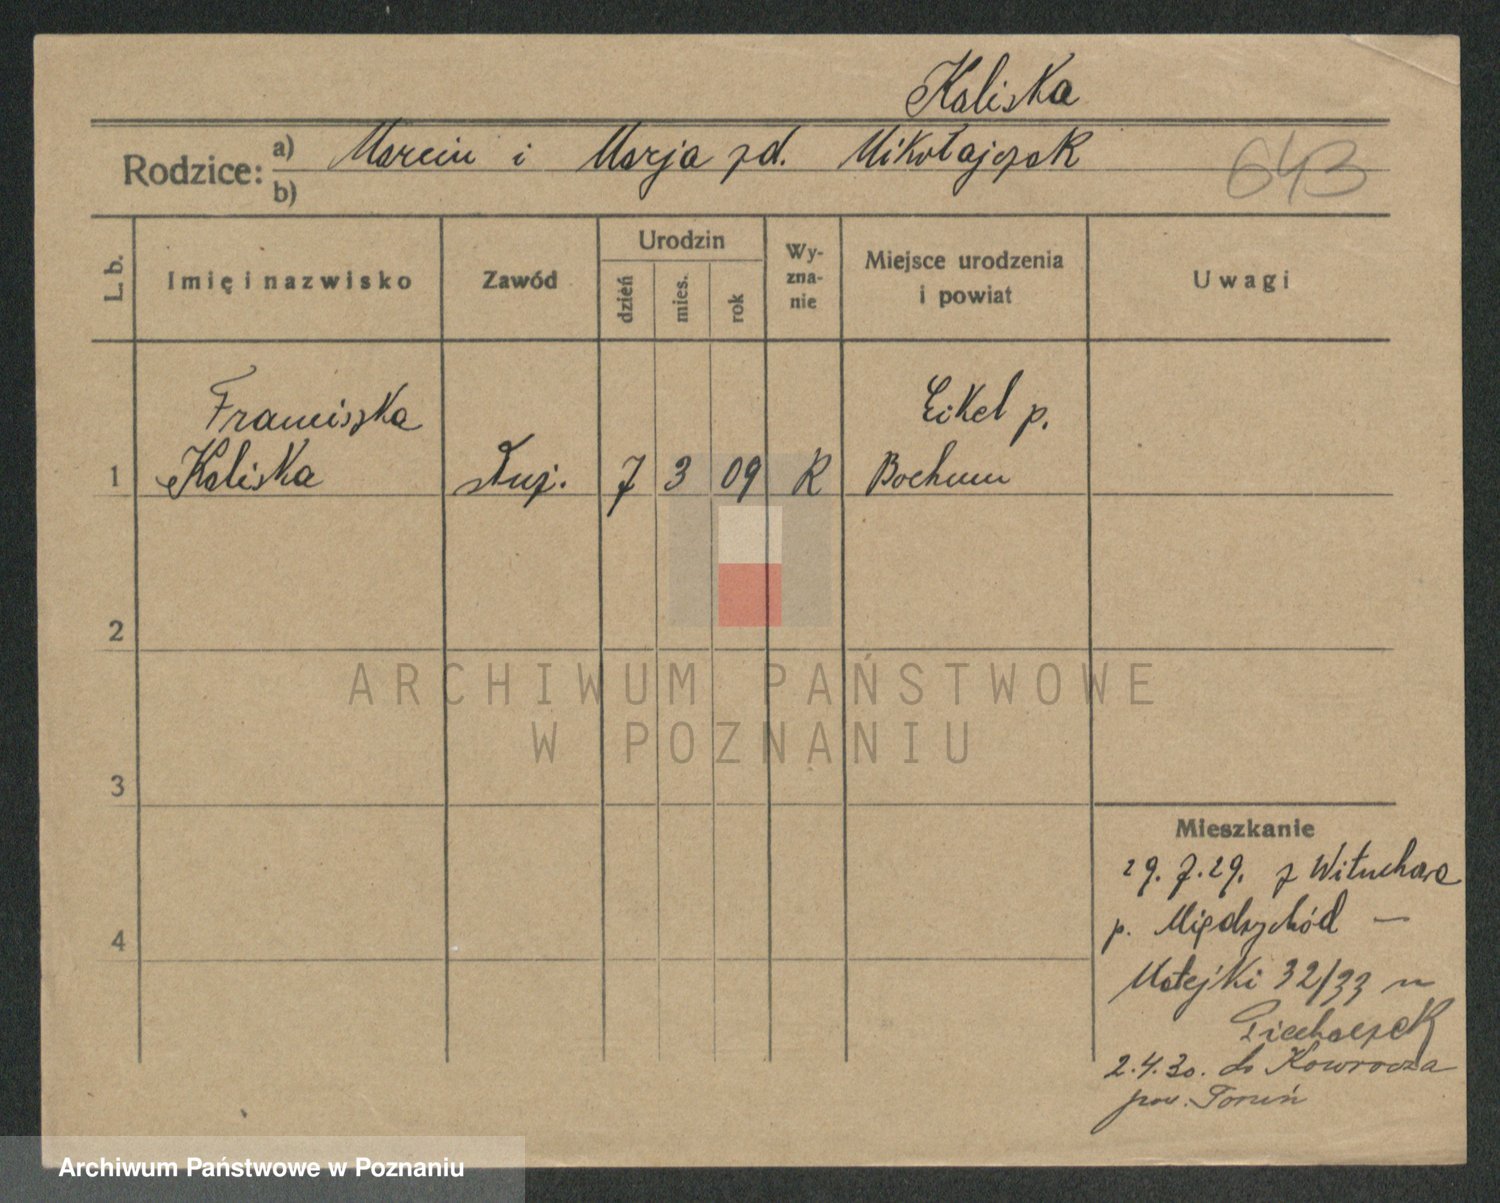 Kaliska
Rodzice: a) Marcin i Marja zd. Mikołajczak
b)
643
L. b.
Imię i nazwisko
Zawód
Urodzin
dzień
mies.
rok
Wy-
zna-
nie
Miejsce urodzenia
i powiat
Uwagi
Franciszka
Kaliska
1
służ.
7 3 09 R
Eikel p.
Bochum
2
3
4
ARCHIWUM PAŃSTWOWE
W POZNANIU
Mieszkanie
29.7.29. z Wituchowa
p. Międzychód —
Matejki 32/33 u
Piechoczek
2.4.30. do Kowrocza
pow. Toruń
Archiwum Państwowe w Poznaniu